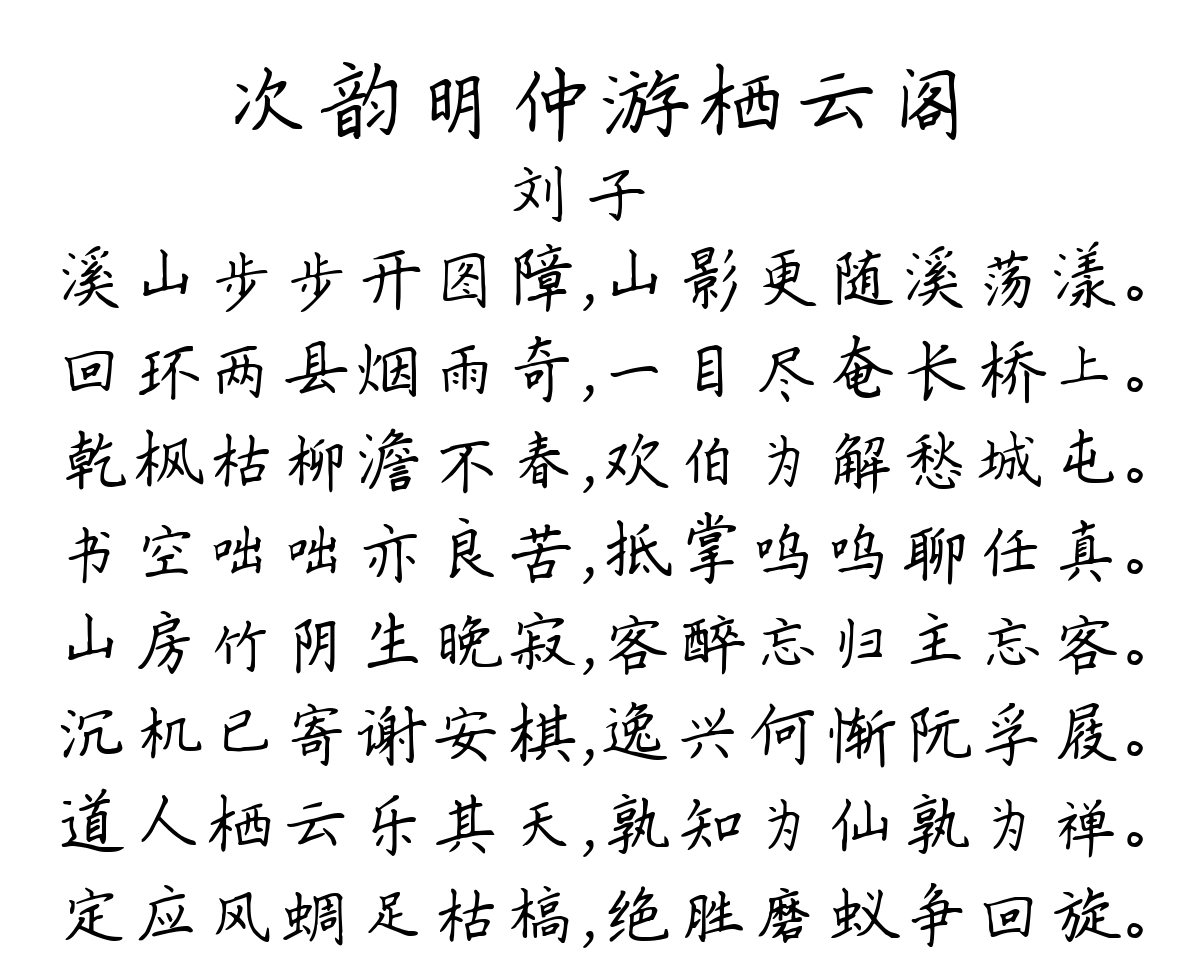 次韵明仲游栖云阁
刘子
溪山步步开图障,山影更随溪荡漾。
回环两县烟雨奇,一目尽奄长桥上。
乾枫枯柳澹不春,欢伯为解愁城屯。
书空咄咄亦良苦,抵掌呜呜聊任真。
山房竹阴生晚寂,客醉忘归主忘客。
沉机已寄谢安棋,逸兴何惭阮孚屐。
道人栖云乐其天,孰知为仙孰为禅。
定应风蜩足枯槁,绝胜磨蚁争回旋。